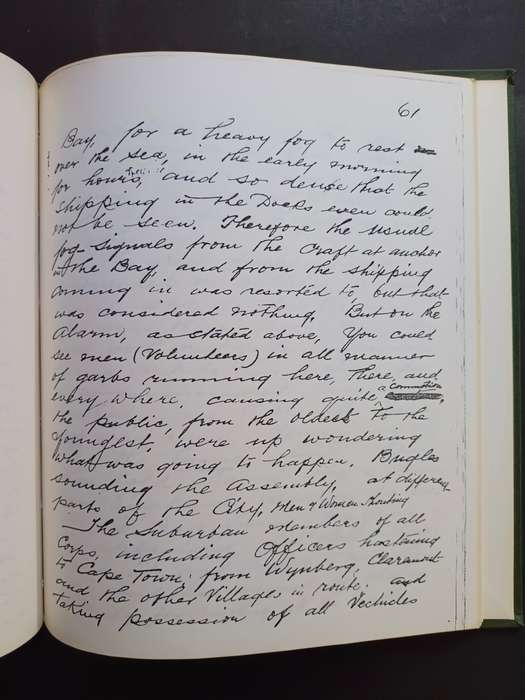 61
Bay, for a heavy fog to rest
over the sea, in the early morning
for hours, and so dense that the
Shipping in the Docks even could
not be seen. Therefore the usual
fog-signals from the Craft at anchor
in the Bay, and from the shipping
coming in was resorted to, but that
was considered nothing. But on the
Alarm, as stated above, You could
see men (Volunteers) in all manner
of garbs running here, there, and
every where, causing quite a commotion,
the public, from the oldest to the
youngest, were up wondering
what was going to happen. Bugles
sounding the Assembly, at different
parts of the City, Men & Women Shouting
The Suburban members of all
Corps, including Officers hastening
to Cape Town; from Wynberg, Claremont
and the other Villages in route; and
taking possession of all Vechicles